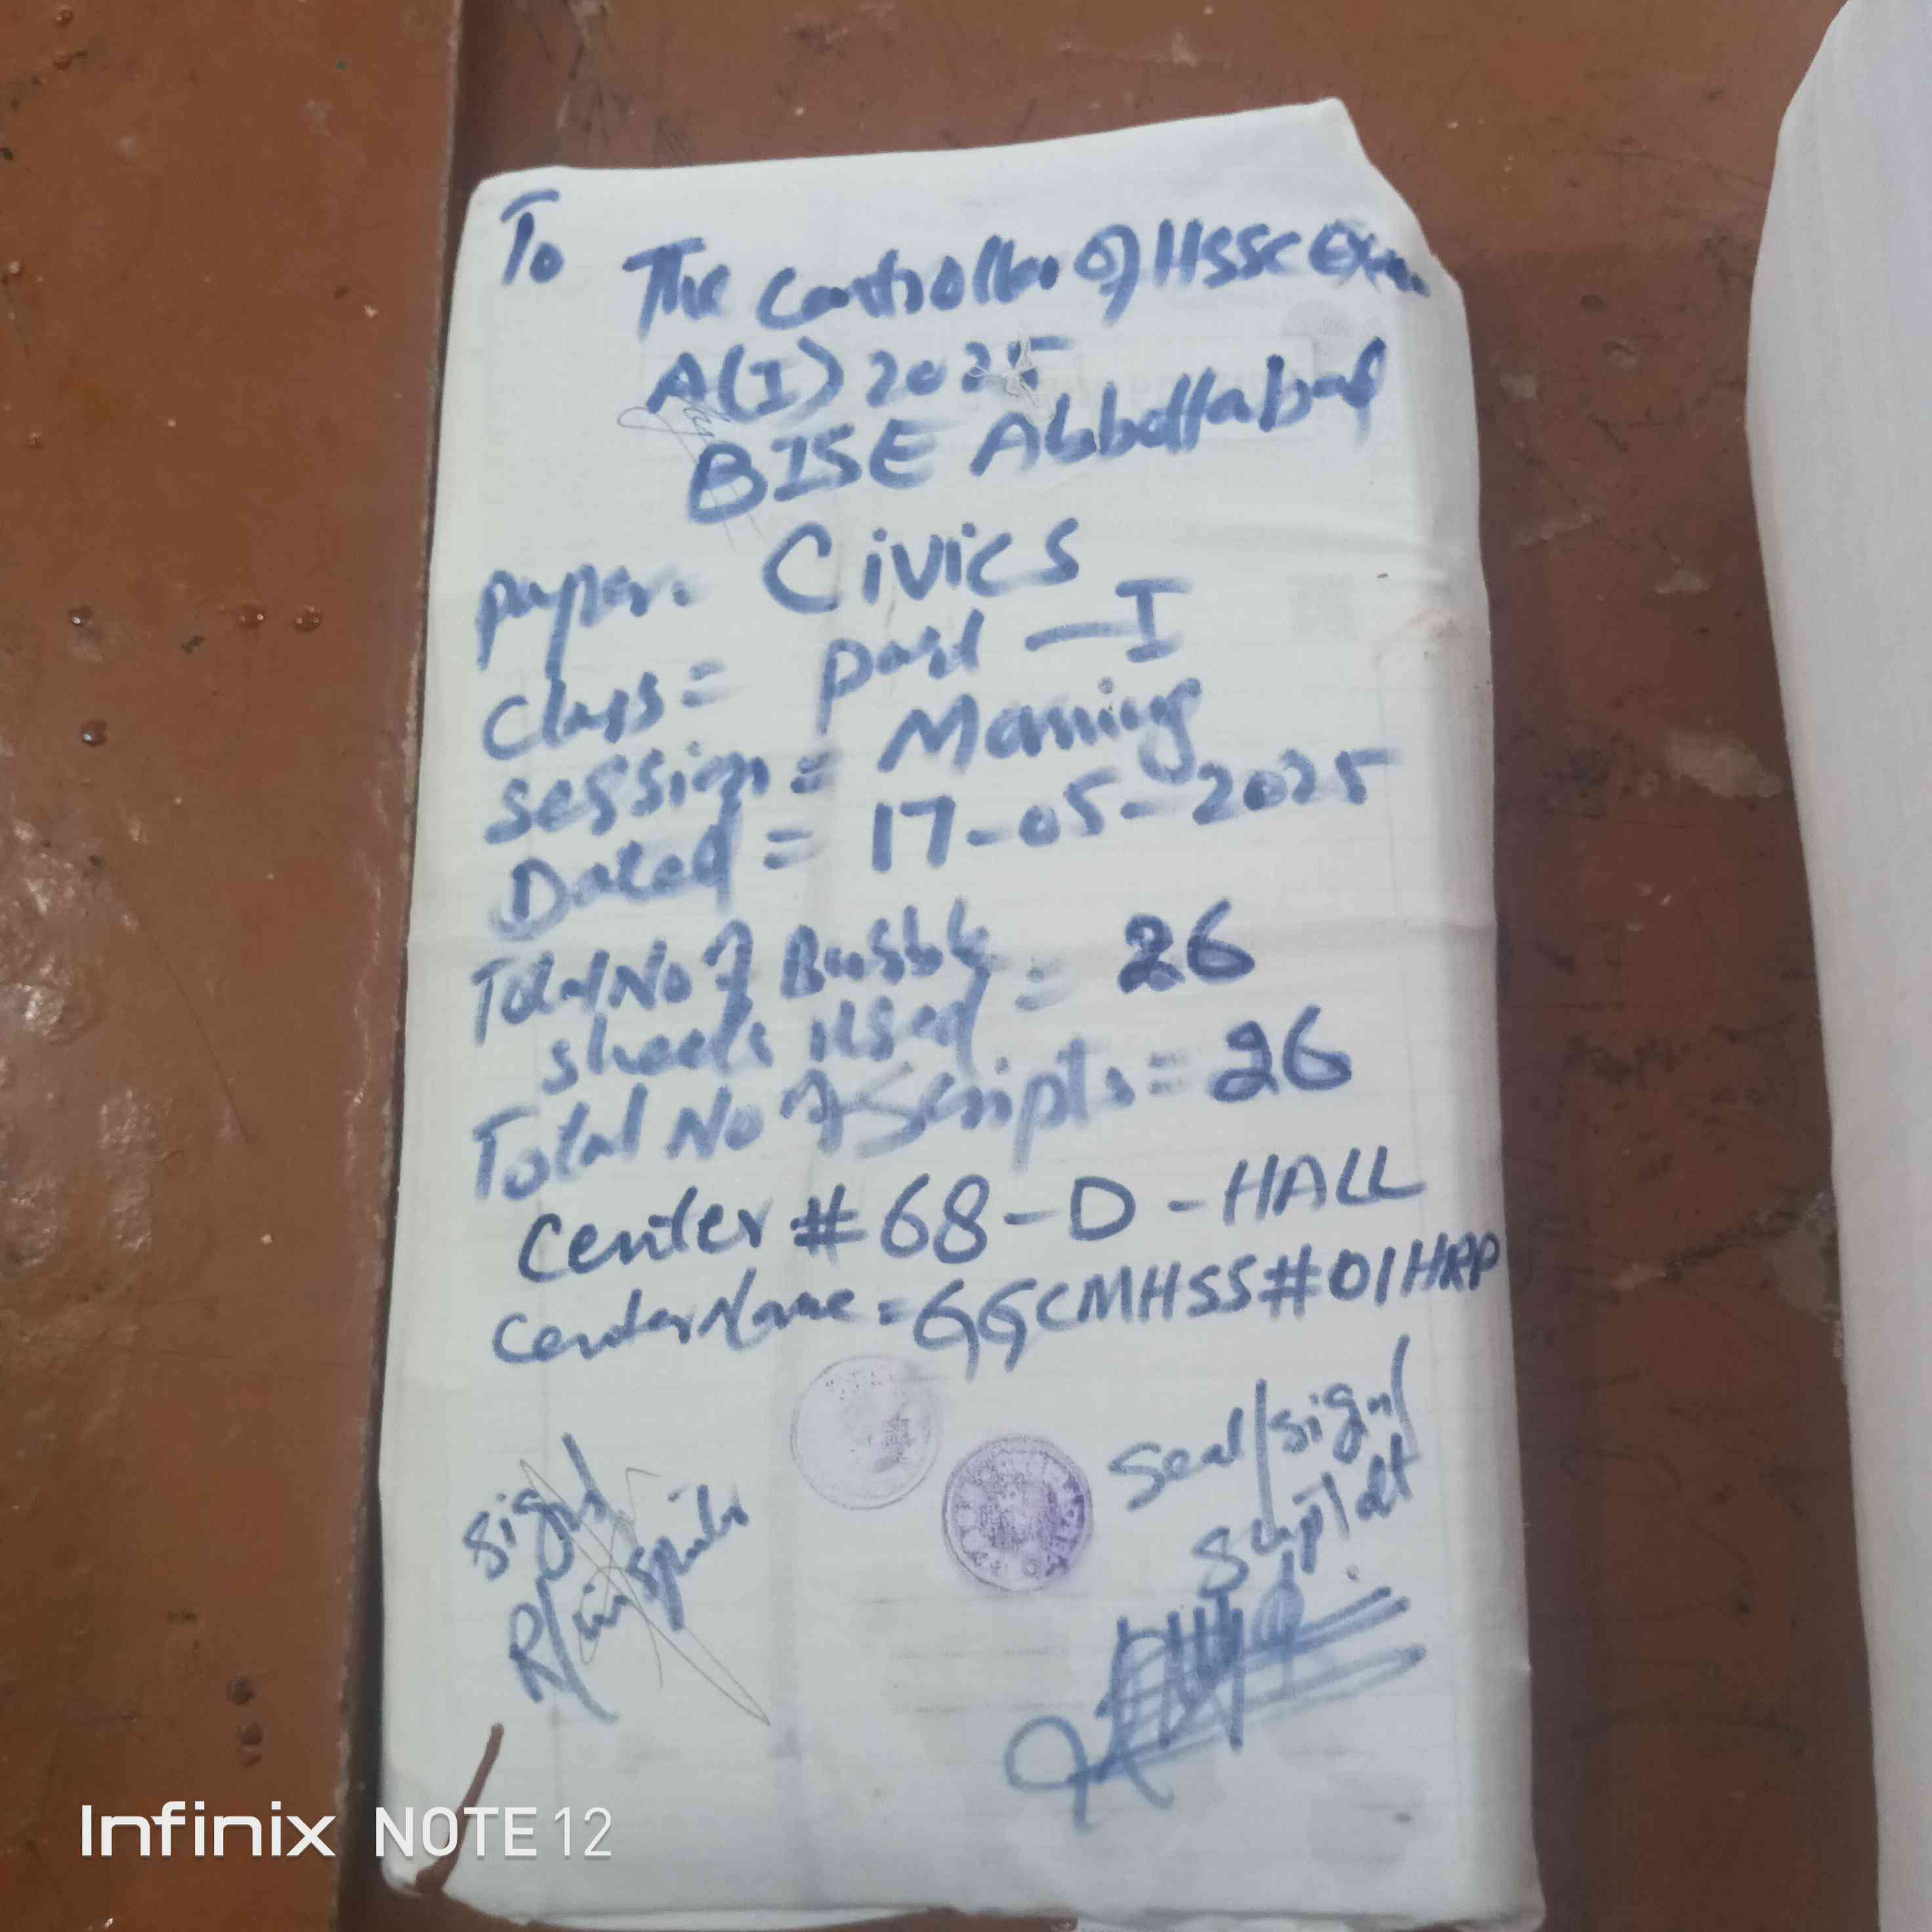 To
The Controller of HSSC Exam
A(I) 2025
BISE Abbottabad
Paper. Civics
Class = Part - I
Session = Morning
Dated = 17-05-2025
Total No of Bubble
Sheets used = 26
Total No of Scripts = 26
Center # 68-D-HALL
Center Name = GGCMHSS#01HRP
Sign/
R/inspector
Seal/Sign/
Supt/dt
Infinix NOTE 12